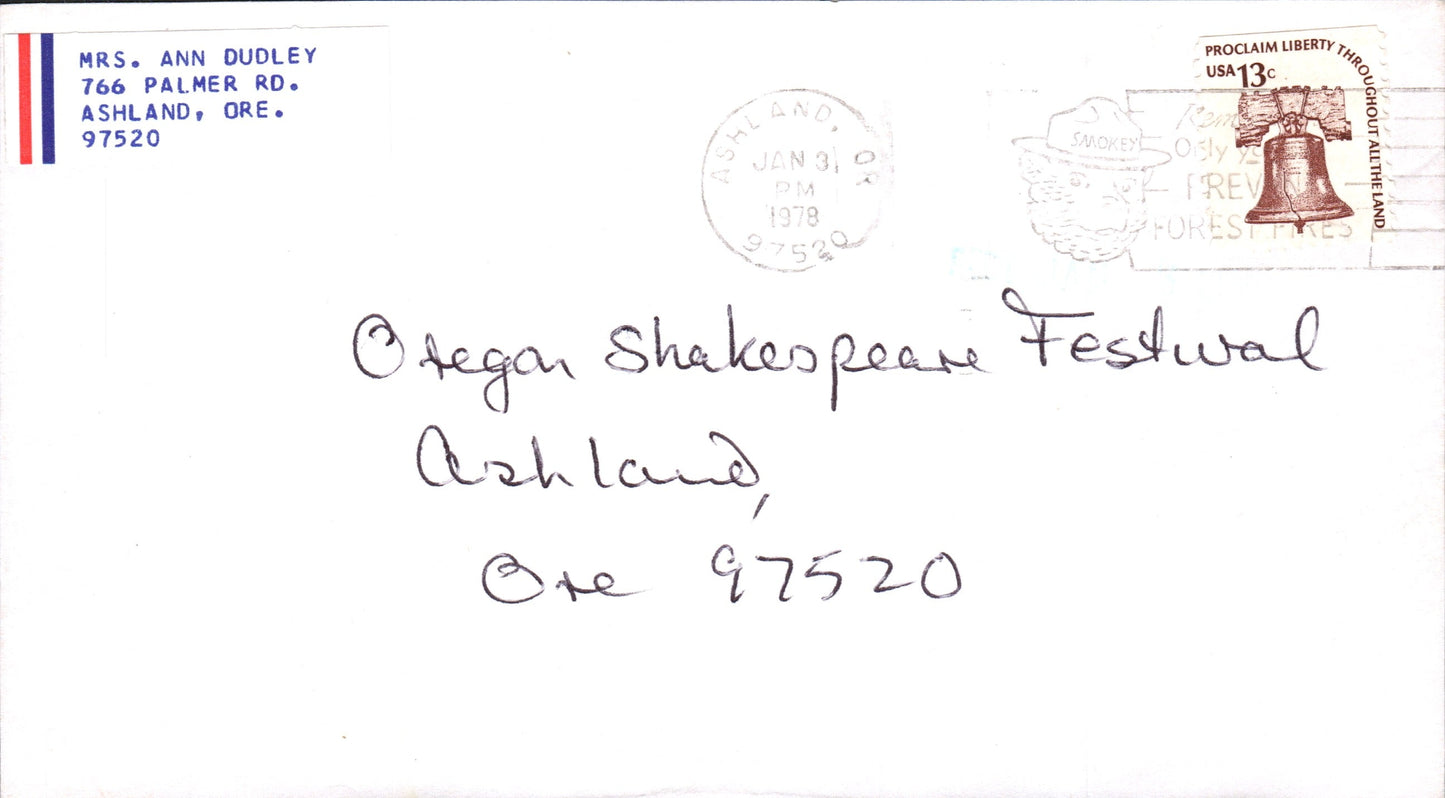 MRS. ANN DUDLEY
766 PALMER RD.
ASHLAND, ORE.
97520
ASHLAND, OR
JAN 3
PM
1978
97520
SMOKEY
Only
PREVENT
FOREST FIRES
PROCLAIM LIBERTY THROUGHOUT ALL THE LAND
USA 13c
Oregon Shakespeare Festival
Ashland,
Ore 97520